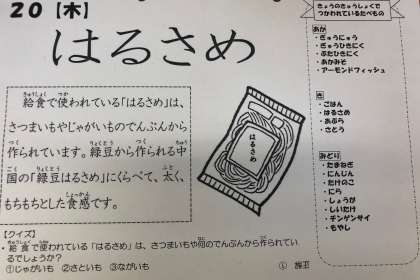 20【木】
はるさめ
給食で使われている「はるさめ」は、
さつまいもやじゃがいものでんぷんから
作られています。緑豆から作られる中
国の「緑豆はるさめ」にくらべて、太く、
もちもちとした食感です。
はるさめ
【クイズ】
・給食で使われている「はるさめ」は、さつまいもや何のでんぷんから作られてい
るでしょうか?
①じゃがいも ②さといも ③ながいも
きょうのきゅうしょくで
つかわれているたべもの
あか
・ぎゅうにゅう
・ぎゅうひきにく
・ぶたひきにく
・あかみそ
・アーモンドフィッシュ
き
・ごはん
・はるさめ
・あぶら
・さとう
みどり
・たまねぎ
・にんじん
・たけのこ
・にら
・しょうが
・しいたけ
・チンゲンサイ
・もやし